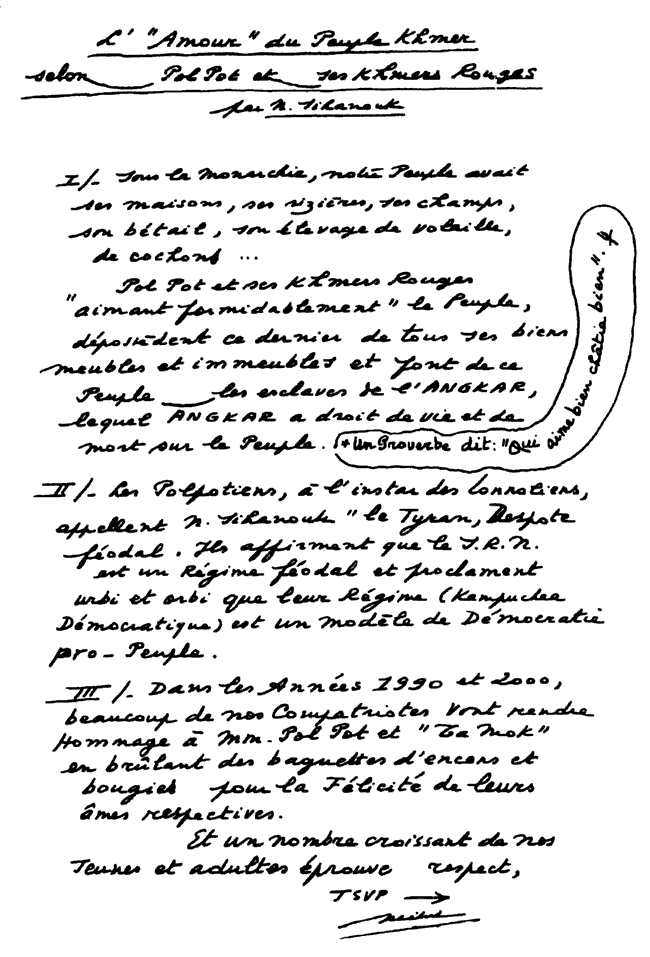 L' "Amour" du Peuple Khmer
selon Pol Pot et ses Khmers Rouges
par N. Sihanouk
I/- Sous la Monarchie, notre Peuple avait
ses maisons, ses rizières, ses champs,
son bétail, son élevage de volaille,
de cochons ...
Pol Pot et ses Khmers Rouges
"aimant formidablement" le Peuple,
dépossèdent ce dernier de tous ses biens
meubles et immeubles et font de ce
Peuple les esclaves de l'ANGKAR,
lequel ANGKAR a droit de vie et de
mort sur le Peuple. * Un Proverbe dit: "Qui aime bien châtie bien".
II/- Les Polpotiens, à l'instar des Lonnoliens,
appellent N. Sihanouk "le Tyran, Despote
féodal. Ils affirment que le S.R.N.
est un Régime féodal et proclament
urbi et orbi que leur Régime (Kampuchea
Démocratique) est un modèle de Démocratie
pro-Peuple.
III/- Dans les Années 1990 et 2000,
beaucoup de nos Compatriotes vont rendre
Hommage à MM. Pol Pot et "Ta Mok"
en brûlant des baguettes d'encens et
bougies pour la Félicité de leurs
âmes respectives.
Et un nombre croissant de nos
Jeunes et adultes éprouve respect,
TSVP →